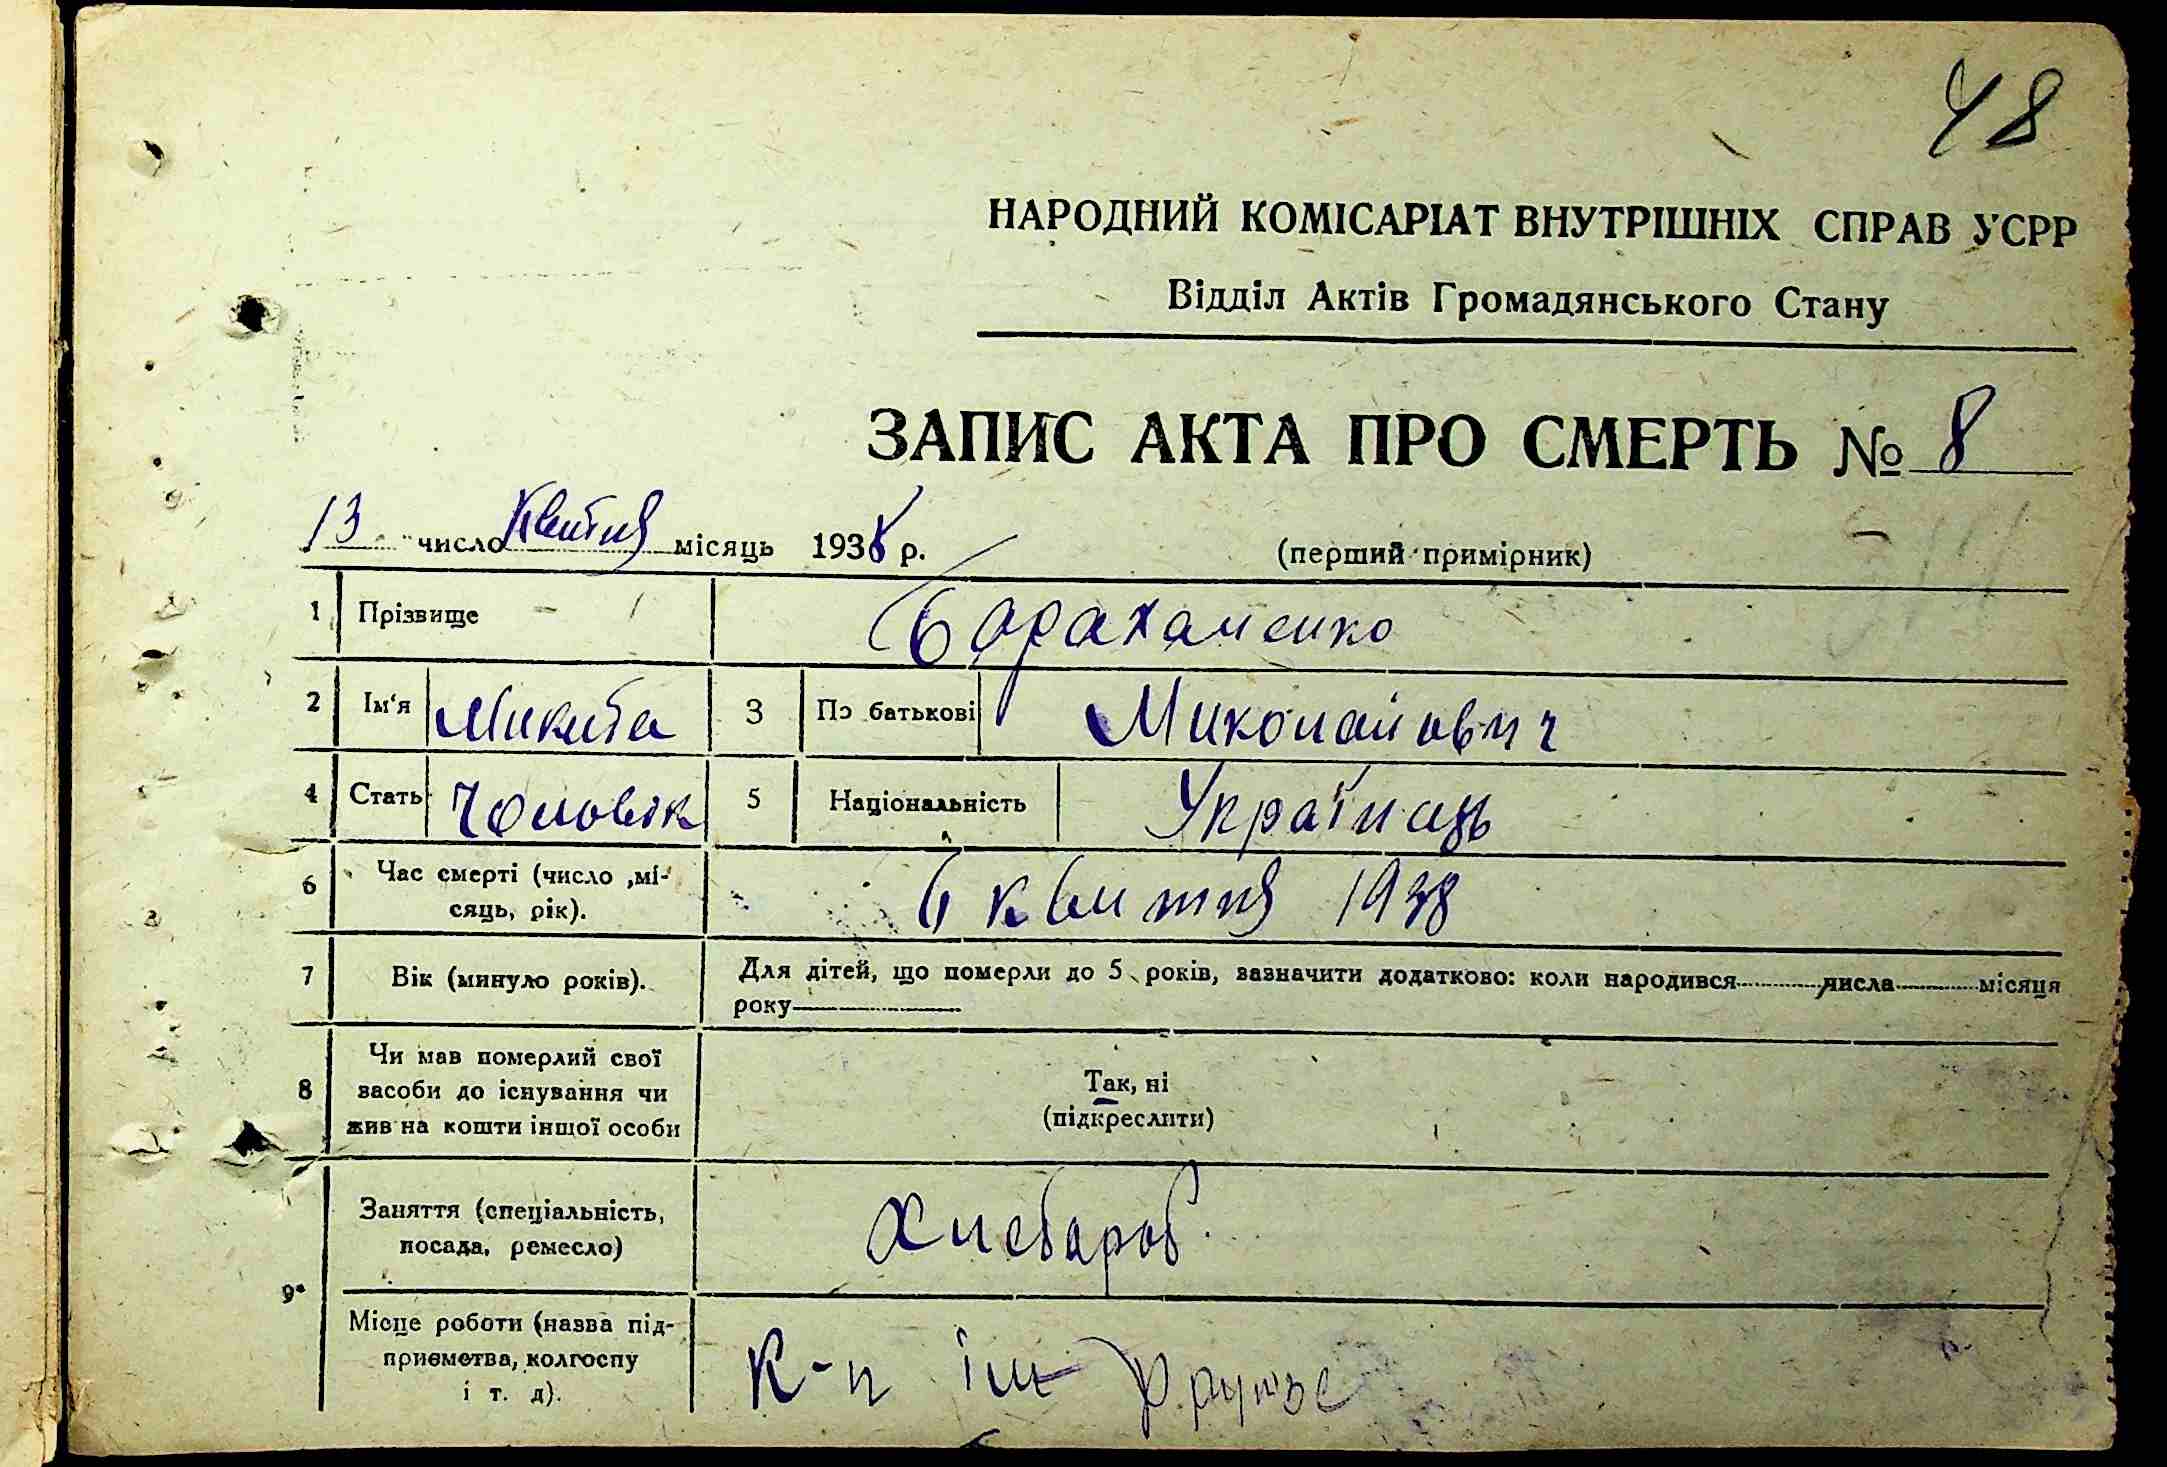 48
НАРОДНИЙ КОМІСАРІАТ ВНУТРІШНІХ СПРАВ УСРР
Відділ Актів Громадянського Стану
ЗАПИС АКТА ПРО СМЕРТЬ № 8
13 число Квитня місяць 1938 р. (перший примірник)
1 Прізвище Барахаменко
2 Ім'я Микита 3 По батькові Миколайович
4 Стать Чоловік 5 Національність Українець
6 Час смерті (число, мі-
сяць, рік). квитня 1938
7 Вік (минуло років). Для дітей, що померли до 5 років, зазначити додатково: коли народився числа місяця
року
Чи мав померлий свої
8 засоби до існування чи
жив на кошти іншої особи
Так, ні
(підкреслити)
Заняття (спеціальність,
посада, ремесло) Хлебароб.
9
Місце роботи (назва під-
приємства, колгоспу
і т. д). К-п ім Фрунзе